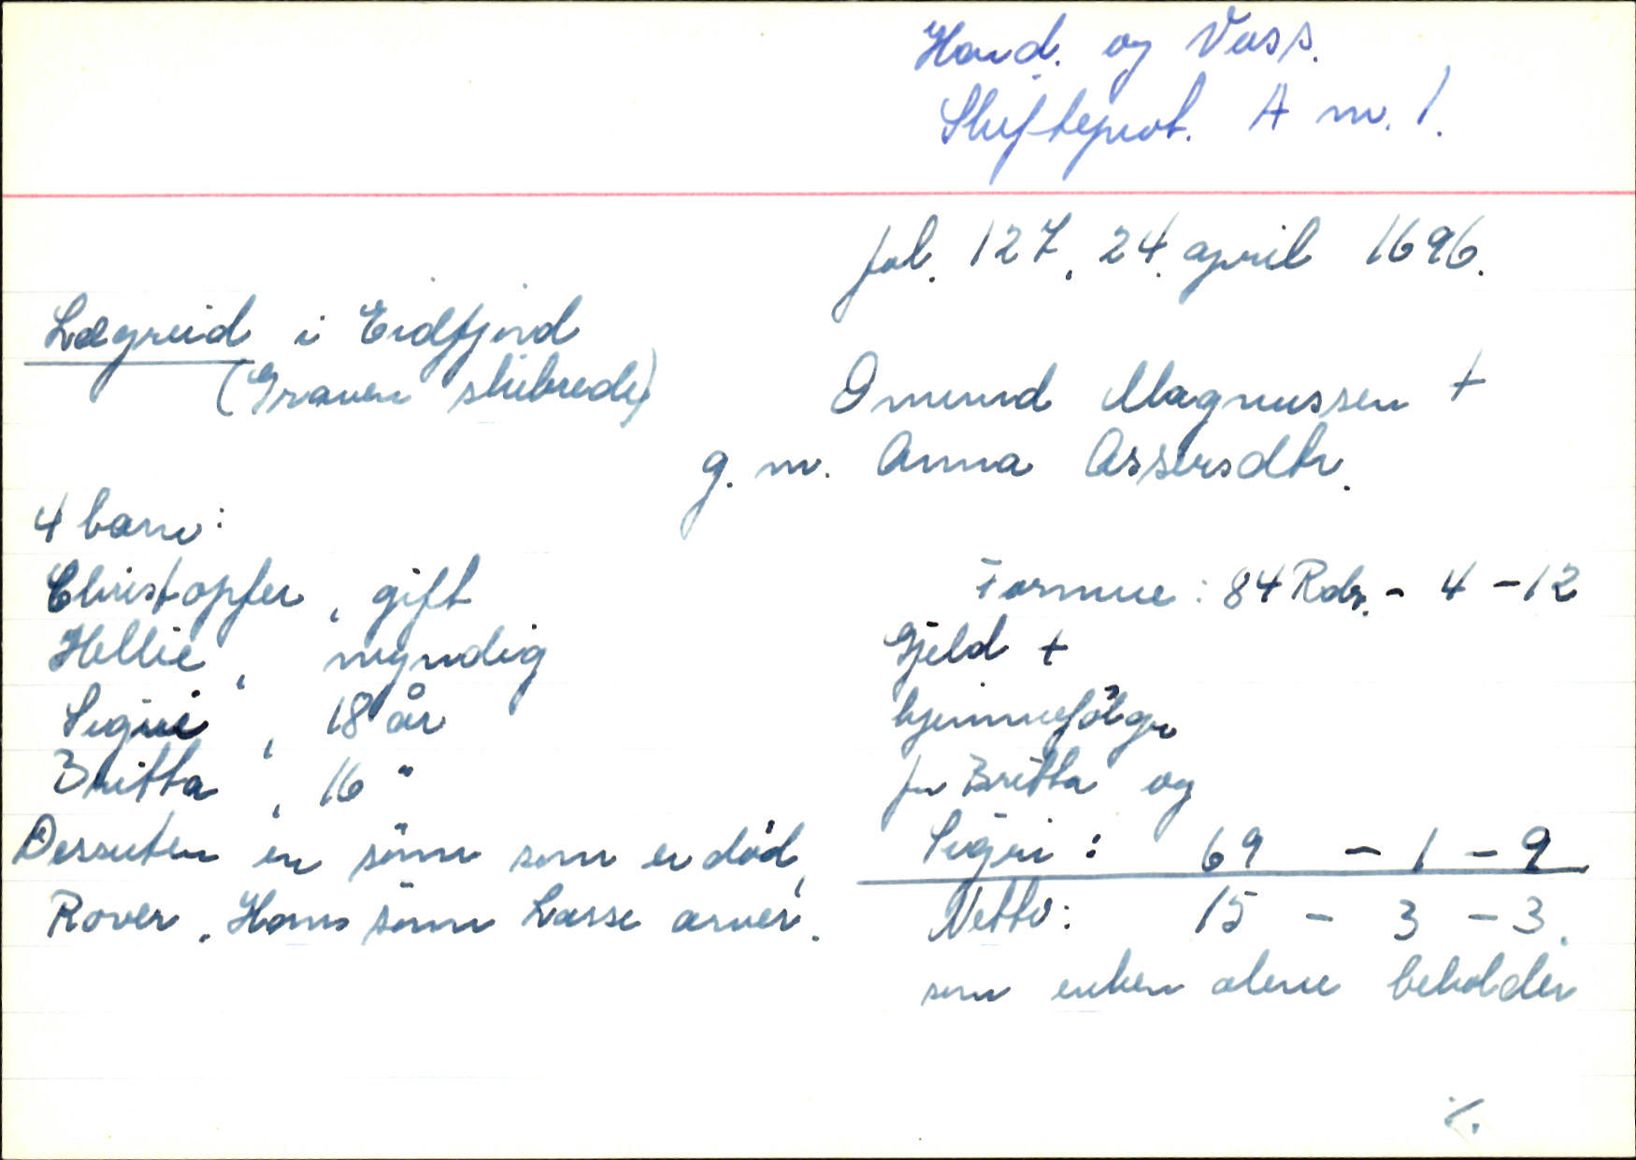 Hard. og Voss.
Skifteprot. A nr. 1.
fol. 127, 24. april 1696.
Lægreid i Eidfjord
(Graven skibrede)
Omund Magnussen +
g. m. Anna Assersdtr.
4 barn:
Christopfer, gift
Hellie, myndig
Sigrii, 18 år
Britta, 16 "
Dessuten en sönn som er död,
Rover. Hans sönn Lasse arver.
Formue: 84 Rdr. - 4 - 12
Gjeld +
hjemmefölge
for Britta og
Sigri: 69 - 1 - 9
Netto: 15 - 3 - 3.
som enken alene beholder
%.